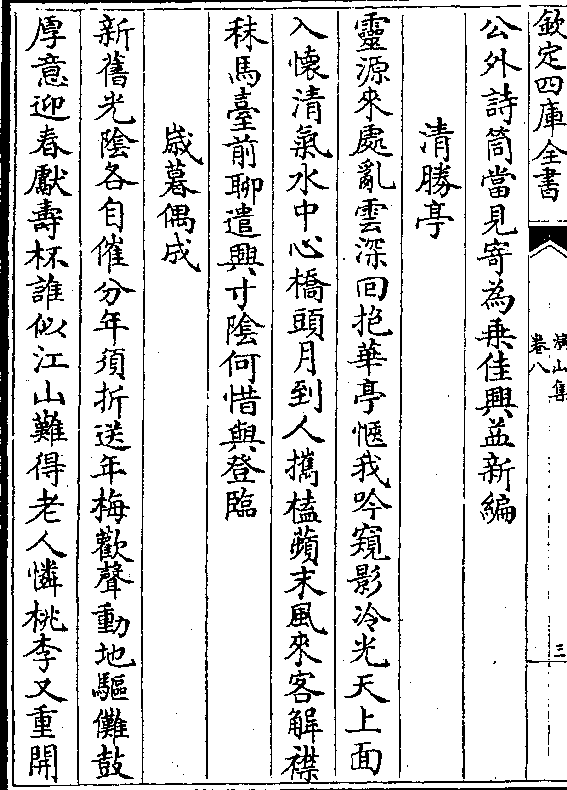 欽定四庫全書
演山集
卷八
三
公外詩筒當見寄為乗佳興並新編
清勝亭
靈源來處亂雲深回抱華亭愜我吟窺影冷光天上面
入懐清氣水中心橋頭月到人攜榼蘋末風來客解襟
秣馬臺前聊遣興寸陰何惜與登臨
歳暮偶成
新舊光陰各自催分年須折送年梅歡聲動地驅儺鼓
厚意迎春獻壽杯誰似江山難得老人憐桃李又重開